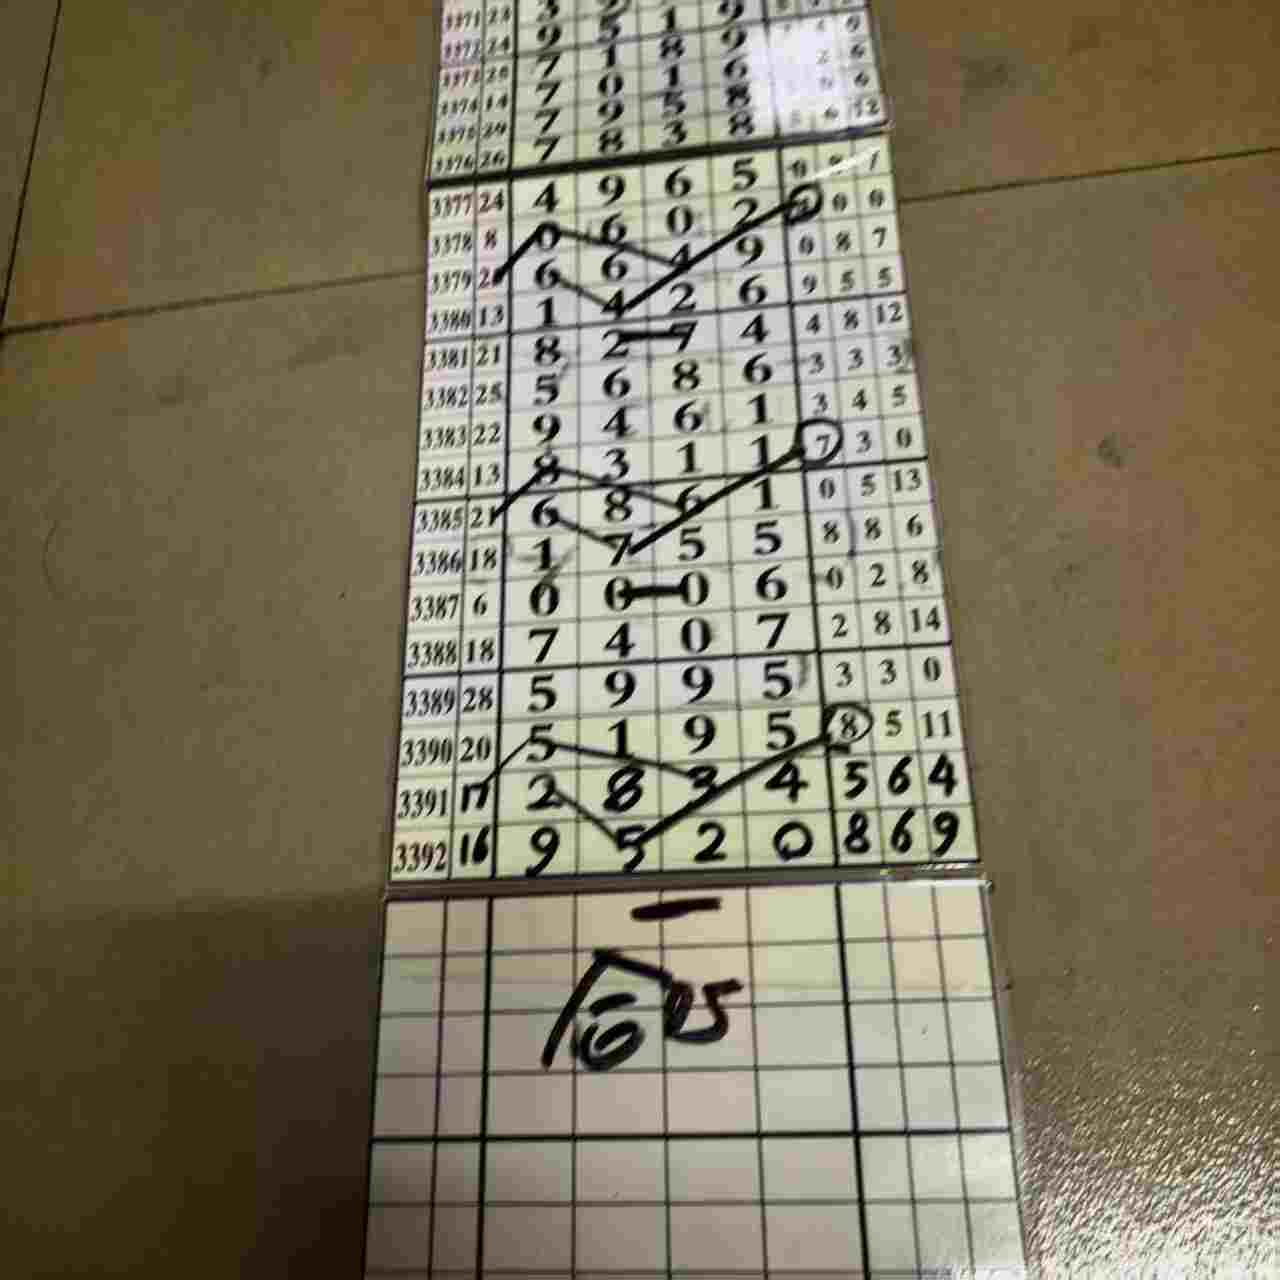 3371 23 3 1 9
3372 24 9 5 8 9 9
3373 7 1 1 6 2 6
3374 14 7 0 5 8 6
3375 29 7 9 3 8 6 12
3376 26 7 8
3377 24 4 9 6 5 0 8 7
3378 8 0 6 0 2 0 0
3379 6 6 4 9 0 8 7
3380 13 1 4 2 6 9 5 5
3381 21 8 2 7 4 4 8 12
3382 25 5 6 8 6 3 3 3
3383 22 9 4 6 1 3 4 5
3384 13 8 3 1 1 7 3 0
3385 21 6 8 6 1 0 5 13
3386 18 1 7 5 5 8 8 6
3387 6 0 0 0 6 0 2 8
3388 18 7 4 0 7 2 8 14
3389 28 5 9 9 5 3 3 0
3390 20 5 1 9 5 8 5 11
3391 17 2 8 3 4 5 6 4
3392 16 9 5 2 0 8 6 9